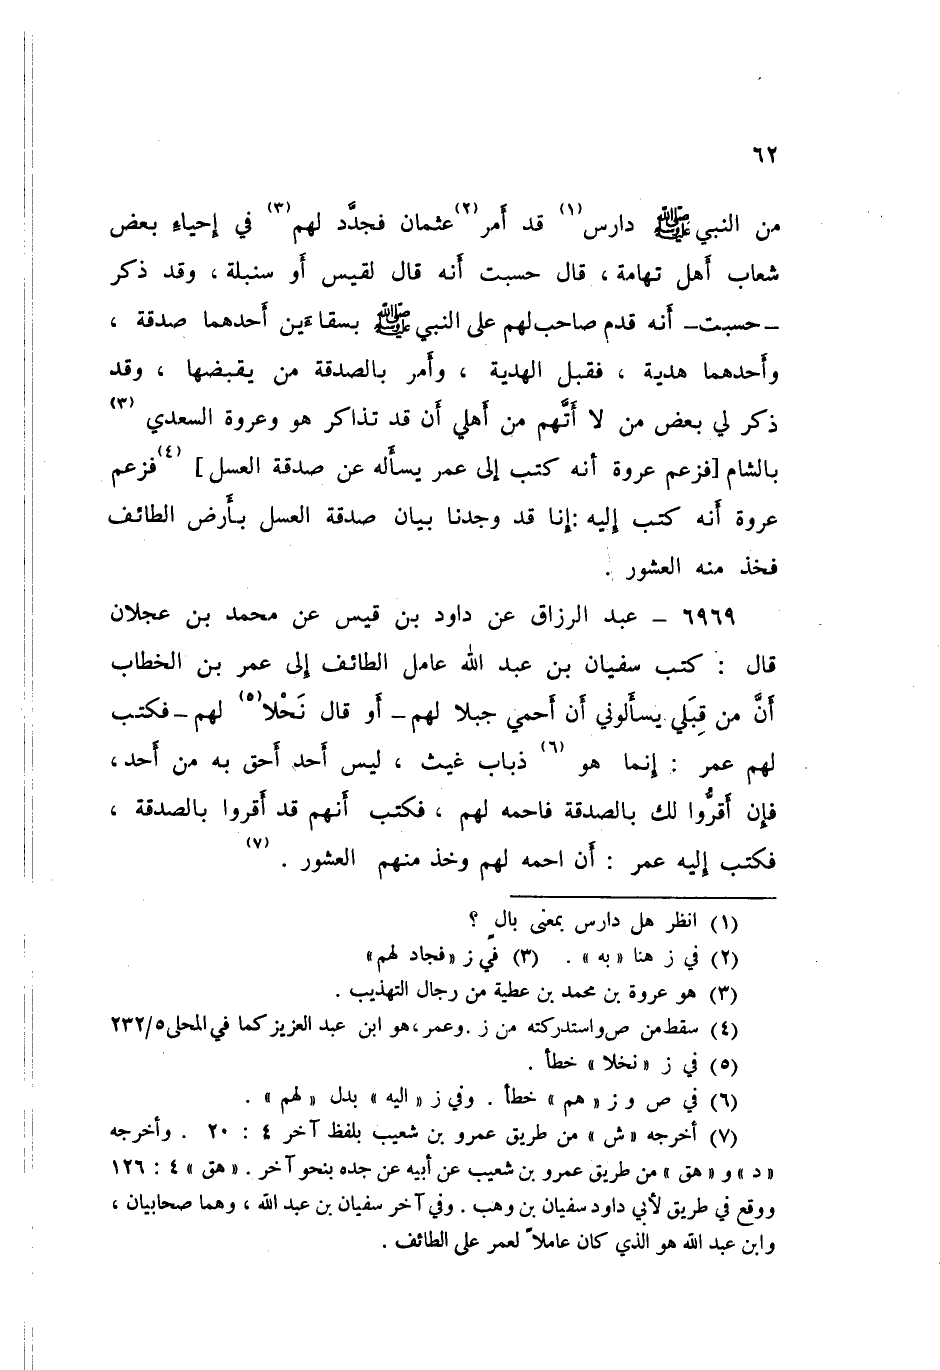 ٦٢
من النبي ﷺ دارس (١) قد أمر (٢) عثمان فجدَّد لهم (٣) في إحياء بعض
شعاب أهل تهامة ، قال حسبت أنه قال لقيس أو سنبلة ، وقد ذكر
ـ حسبت ـ أنه قدم صاحب لهم على النبي ﷺ بسقاءين أحدهما صدقة ،
وأحدهما هدية ، فقبل الهدية ، وأمر بالصدقة من يقبضها ، وقد
ذكر لي بعض من لا أتَّهم من أهلي أن قد تذاكر هو وعروة السعدي (٣)
بالشام [فزعم عروة أنه كتب إلى عمر يسأله عن صدقة العسل] (٤) فزعم
عروة أنه كتب إليه : إنا قد وجدنا بيان صدقة العسل بأرض الطائف
فخذ منه العشور .
٦٩٦٩ ـ عبد الرزاق عن داود بن قيس عن محمد بن عجلان
قال : كتب سفيان بن عبد الله عامل الطائف إلى عمر بن الخطاب
أنَّ من قِبَلي يسألوني أن أحمي جبلا لهم ـ أو قال نَحْلا (٥) لهم ـ فكتب
لهم عمر : إنما هو (٦) ذباب غيث ، ليس أحد أحق به من أحد ،
فإن أقرُّوا لك بالصدقة فاحمه لهم ، فكتب أنهم قد أقروا بالصدقة ،
فكتب إليه عمر : أن احمه لهم وخذ منهم العشور . (٧)
(١) انظر هل دارس بمعنى بالٍ ؟
(٢) في ز هنا «به» . (٣) في ز «فجاد لهم»
(٣) هو عروة بن محمد بن عطية من رجال التهذيب .
(٤) سقط من ص واستدركته من ز . وعمر ، هو ابن عبد العزيز كما في المحلى ٢٣٢/٥
(٥) في ز «نخلا» خطأ .
(٦) في ص و ز «هم» خطأ . وفي ز «اليه» بدل «لهم» .
(٧) أخرجه «ش» من طريق عمرو بن شعيب بلفظ آخر ٤ : ٢٠ . وأخرجه
«د» و «هق» من طريق عمرو بن شعيب عن أبيه عن جده بنحو آخر . «هق» ٤ : ١٢٦
ووقع في طريق لأبي داود سفيان بن وهب . وفي آخر سفيان بن عبد الله ، وهما صحابيان ،
وابن عبد الله هو الذي كان عاملاً لعمر على الطائف .